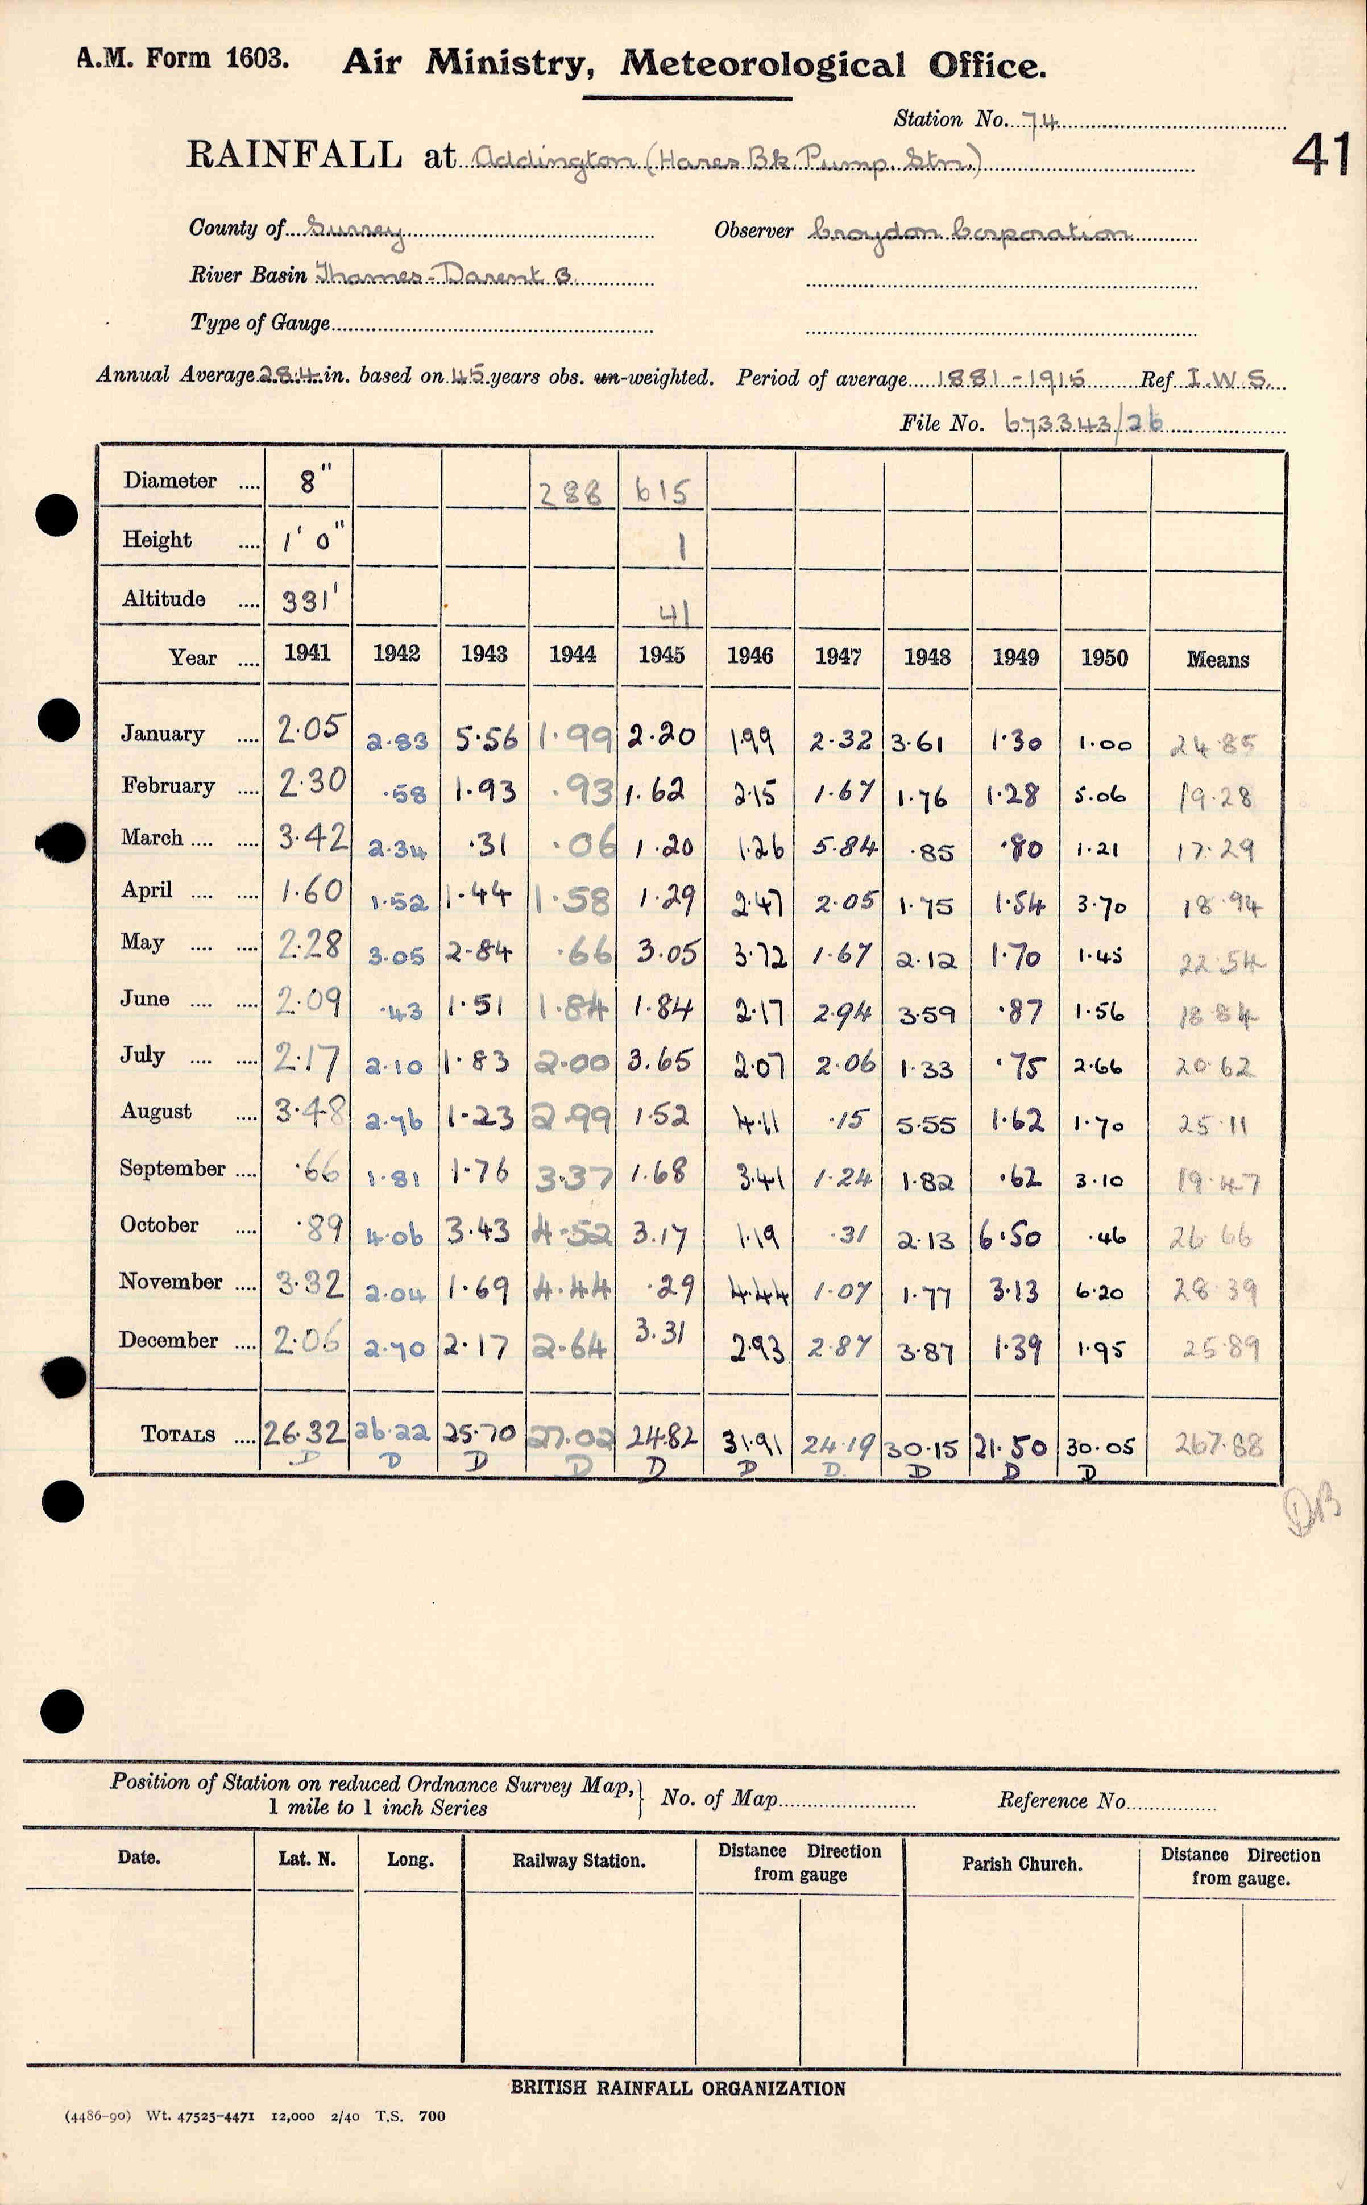 A.M. Form 1603. Air Ministry, Meteorological Office.
Station No. 74
41
RAINFALL at Addington (Hares Bk Pump. Stn.)
County of Surrey Observer Croydon Corporation
River Basin Thames-Darent B.
Type of Gauge
Annual Average 28.4 in. based on 45 years obs. un-weighted. Period of average 1881-1915 Ref I.W.S.
File No. 673343/26
Diameter .... 8" 288 615
Height .... 1' 0" 1
Altitude .... 331' 41
Year .... 1941 1942 1943 1944 1945 1946 1947 1948 1949 1950 Means
January .... 2.05 2.83 5.56 1.99 2.20 1.99 2.32 3.61 1.30 1.00 24.85
February .... 2.30 .58 1.93 .93 1.62 2.15 1.67 1.76 1.28 5.06 19.28
March .... .... 3.42 2.34 .31 .06 1.20 1.26 5.84 .85 .80 1.21 17.29
April .... .... 1.60 1.52 1.44 1.58 1.29 2.47 2.05 1.75 1.54 3.70 18.94
May .... .... 2.28 3.05 2.84 .66 3.05 3.72 1.67 2.12 1.70 1.45 22.54
June .... .... 2.09 .43 1.51 1.84 1.84 2.17 2.94 3.59 .87 1.56 18.84
July .... .... 2.17 2.10 1.83 2.00 3.65 2.07 2.06 1.33 .75 2.66 20.62
August .... 3.48 2.76 1.23 2.99 1.52 4.11 .15 5.55 1.62 1.70 25.11
September .... .66 1.81 1.76 3.37 1.68 3.41 1.24 1.82 .62 3.10 19.47
October .... .89 4.06 3.43 4.52 3.17 1.19 .31 2.13 6.50 .46 26.66
November .... 3.32 2.04 1.69 4.44 .29 4.44 1.07 1.77 3.13 6.20 28.39
December .... 2.06 2.70 2.17 2.64 3.31 2.93 2.87 3.87 1.39 1.95 25.89
TOTALS .... 26.32 26.22 25.70 27.02 24.82 31.91 24.19 30.15 21.50 30.05 267.88
D D D D D D D D D D
DB
Position of Station on reduced Ordnance Survey Map, 1 mile to 1 inch Series } No. of Map Reference No.
Date. Lat. N. Long. Railway Station. Distance Direction from gauge Parish Church. Distance Direction from gauge.
BRITISH RAINFALL ORGANIZATION
(4486-90) Wt. 47525-4471 12,000 2/40 T.S. 700